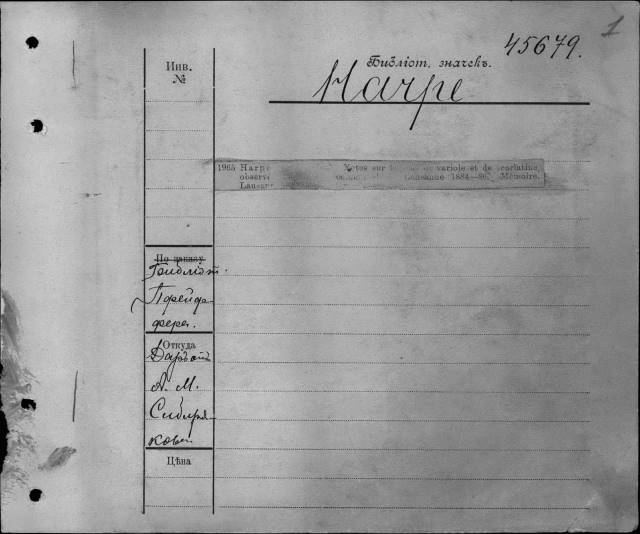 1
45679.
Библіот. значекъ.
Harpe
Инв.
№
1965 Harpe Notes sur variole et de scarlatine,
observé Lausanne 1884—86. Mémoire.
Lausan
По заказу
Библіот.
Пфейф-
фера.
Откуда
Даръ
А. М.
Сибиря-
кова
Цѣна